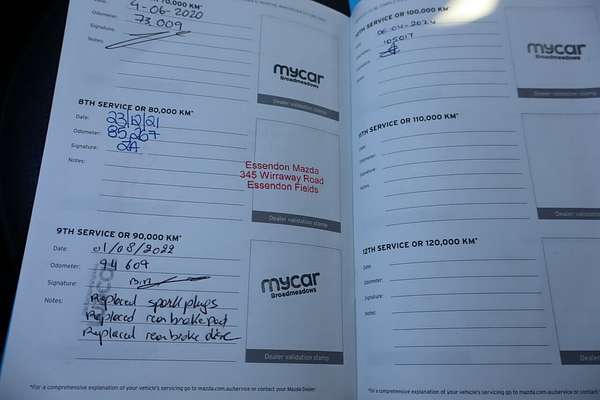 70,000 KM*
Date: 4-06-2020
Odometer: 73,009
Signature:
Notes:
mycar
Broadmeadows
Dealer validation stamp
8TH SERVICE OR 80,000 KM*
Date: 23/12/21
Odometer: 85,267
Signature:
Notes:
Essendon Mazda
345 Wirraway Road
Essendon Fields
Dealer validation stamp
9TH SERVICE OR 90,000 KM*
Date: 01/08/2022
Odometer: 94 609
Signature:
Notes: Replaced spark plugs
Replaced rear brake pad
Replaced rear brake disc
mycar
Broadmeadows
Dealer validation stamp
*For a comprehensive explanation of your vehicle's servicing go to mazda.com.au/service or contact your Mazda Dealer
SERVICE OR 100,000 KM*
06-04-2024
105017
mycar
Broadmeadows
Dealer validation stamp
SERVICE OR 110,000 KM*
Date:
Odometer:
Signature:
Notes:
Dealer validation stamp
12TH SERVICE OR 120,000 KM*
Date:
Odometer:
Signature:
Notes:
Dealer validation stamp
*For a comprehensive explanation of your vehicle's servicing go to mazda.com.au/service or contact